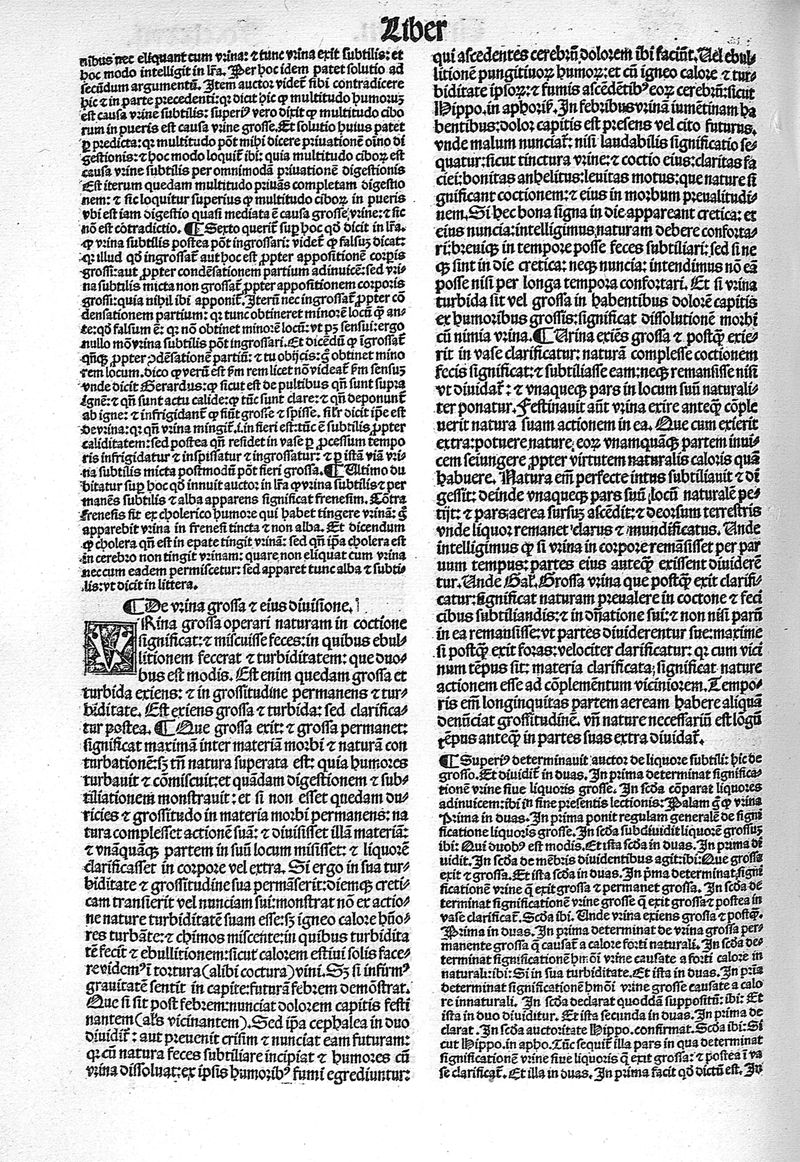 Liber
nibus nec eliquant cum vrina: ⁊ tunc vrina exit subtilis: et
hoc modo intelligit in lr̃a. Per hoc idem patet solutio ad
secũdum argumentũ. Item auctor videt̃ sibi contradicere
hic ⁊ in parte precedenti: qr dicit hic ꝙ multitudo humorum
est causa vrine subtilis: superiꝰ vero dixit ꝙ multitudo cibo
rum in pueris est causa vrine grosse. Et solutio huius patet
ꝑ predicta: qr multitudo põt mihi dicere priuationẽ oĩno di
gestionis: ⁊ hoc modo loquit̃ ibi: quia multitudo ciboꝝ est
causa vrine subtilis per omnimodã priuationẽ digestionis
Est iterum quedam multitudo priuãs completam digestio
nem: ⁊ sic loquitur superius ꝙ multitudo ciboꝝ in pueris
vbi est iam digestio quasi mediata ẽ causa grosse vrine: ⁊ sic
nõ est cõtradictio. ¶ Sexto querit̃ sup hoc qď dicit in lr̃a.
ꝙ vrina subtilis postea põt ingrossari: videt̃ ꝙ falsuꝫ dicat:
qr illud qď ingrossat̃ aut hoc est ꝓpter appositionẽ corpis
grossi: aut ꝓpter condẽsationem partium adinuicẽ: sed vri
na subtilis micta non grossat̃ ꝓpter appositionem corporis
grossi: quia nihil ibi apponit̃. Iterũ nec ingrossat̃ ꝓpter cõ
densationem partium: qr tunc obtineret minorẽ locũ ꝙ an⸗
te: qď falsum ẽ: qr nõ obtinet minorẽ locũ: vt pꝫ sensui: ergo
nullo mõ vrina subtilis põt ingrossari. Et dicẽdũ ꝙ ĩgrossat̃
qñqꝫ ꝓpter ꝯdẽsationẽ partiũ: ⁊ tu obijcis: g̃ obtinet mino
rem locum. dico ꝙ verũ est f̃m rem licet nõ videat̃ f̃m sensuꝫ
vnde dicit Gerardus: ꝙ sicut est de pultibus qñ sunt supra
ignẽ: ⁊ qñ sunt actu calide: ꝙ tũc sunt clare: ⁊ qñ deponunt̃
ab igne: ⁊ infrigidant̃ ꝙ fiũt grosse ⁊ spisse. sil̃r dicit ip̃e est
de vrina: qr qñ vrina mingit̃. i. in fieri est: tũc ẽ subtilis ꝓpter
caliditatem: sed postea qñ residet in vase ꝑ ꝓcessum tempo
ris infrigidatur ⁊ inspissatur ⁊ ingrossatur: ⁊ ꝑ istã viã vri⸗
na subtilis micta postmodũ põt fieri grossa. ¶ Ultimo du
bitatur sup hoc qď innuit auctor: in lr̃a ꝙ vrina subtilis ⁊ per
manẽs subtilis ⁊ alba apparens significat frenesim. Cõtra
frenesis fit ex cholerico humore qui habet tingere vrinã: g̃
apparebit vrina in frenesi tincta ⁊ non alba. Et dicendum
ꝙ cholera qñ est in epate tingit vrinã: sed qñ ip̃a cholera est
in cerebro non tingit vrinam: quare non eliquat cum vrina
nec cum eadem permiscetur: sed apparet tunc alba ⁊ subti⸗
lis: vt dicit in littera.
¶ De vrina grossa ⁊ eius diuisione.
VRina grossa operari naturam in coctione
significat: ⁊ miscuisse feces: in quibus ebul⸗
litionem fecerat ⁊ turbiditatem: que duo⸗
bus est modis. Est enim quedam grossa et
turbida exiens: ⁊ in grossitudine permanens ⁊ tur⸗
biditate. Est exiens grossa ⁊ turbida: sed clarifica⸗
tur postea. ¶ Que grossa exit: ⁊ grossa permanet:
significat maximã inter materiã morbi ⁊ naturã con
turbationẽ: sꝫ tñ natura superata est: quia humores
turbauit ⁊ cõmiscuit: et quãdam digestionem ⁊ sub⸗
tiliationem monstrauit: et si non esset quedam du⸗
ricies ⁊ grossitudo in materia morbi permanens: na
tura complesset actionẽ suã: ⁊ diuisisset illã materiã:
⁊ vnãquãqꝫ partem in suũ locum misisset: ⁊ liquorẽ
clarificasset in corpore vel extra. Si ergo in sua tur⸗
biditate ⁊ grossitudine sua permãserit: diemqꝫ creti⸗
cam transierit vel nunciam sui: monstrat nõ ex actio⸗
ne nature turbiditatẽ suam esse: sꝫ igneo calore hũo⸗
res turbãte: ⁊ chimos miscente: in quibus turbidita
tẽ fecit ⁊ ebullitionem: sicut calorem estiui solis face⸗
re videmꝰ ĩ tortura (alibi coctura) vini. Sꝫ si infirmꝰ
grauitatẽ sentit in capite: futurã febrem demõstrat.
Que si sit post febrem: nunciat dolorem capitis festi
nantem (al̃s vicinantem). Sed ip̃a cephalea in duo
diuidit̃: aut preuenit crisim ⁊ nunciat eam futuram:
qr cũ natura feces subtiliare incipiat ⁊ humores cũ
vrina dissoluat: ex ipsis humoribꝰ fumi egrediuntur:
qui ascedentes cerebrũ dolorem ibi faciũt. Uel ebul⸗
litionẽ pungitiuoꝝ humoꝝ: et cũ igneo calore ⁊ tur⸗
biditate ipsoꝝ: ⁊ fumis ascẽdẽtibꝰ eoꝝ cerebrũ: sicut
Hippo. in aphoriꝫ. In febribus vrinã iumẽtinam ha
bentibus: dolor capitis est presens vel cito futurus.
vnde malum nunciat: nisi laudabilis significatio se⸗
quatur: sicut tinctura vrine: ⁊ coctio eius: claritas fa
ciei: bonitas anhelitus: leuitas motus: que nature si
gnificant coctionem: ⁊ eius in morbum preualitudi⸗
nem. Si hec bona signa in die appareant cretica: et
eius nuncia: intelligimus naturam debere conforta⸗
ri: breuiqꝫ in tempore posse feces subtiliari: sed si ne
qꝫ sunt in die cretica: neqꝫ nuncia: intendimus nõ eã
posse nisi per longa tempora confortari. Et si vrina
turbida sit vel grossa in habentibus dolorẽ capitis
ex humoribus grossis: significat dissolutionẽ morbi
cũ nimia vrina. ¶ Urina exiẽs grossa ⁊ postqꝫ exie⸗
rit in vase clarificatur: naturã complesse coctionem
fecis significat: ⁊ subtiliasse eam: neqꝫ remansisse nisi
vt diuidat̃: ⁊ vnaqueqꝫ pars in locum suũ naturali⸗
ter ponatur. Festinauit aũt vrina exire anteqꝫ cõple
uerit natura suam actionem in ea. Que cum exierit
extra: potuere nature, eoꝝ vnamquãqꝫ partem inui⸗
cem seiungere ꝓpter virtutem naturalis caloris quã
habuere. Natura em̃ perfecte intus subtiliauit ⁊ di
gessit: deinde vnaqueqꝫ pars suũ locũ naturalẽ pe⸗
tijt: ⁊ pars aerea sursuꝫ ascẽdit: ⁊ deorsum terrestris
vnde liquor remanet clarus ⁊ mundificatus. Unde
intelligimus ꝙ si vrina in corpore remãsisset per par
uum tempus: partes eius anteqꝫ exissent diuiderẽ
tur. Unde Gal̃. Grossa vrina que postqꝫ exit clarifi⸗
catur: significat naturam preualere in coctone ⁊ feci
cibus subtiliandis: ⁊ in dñatione sui: ⁊ non nisi parũ
in ea remansisse: vt partes diuiderentur sue: maxime
si postqꝫ exit foras: velociter clarificatur: qr cum vici
num tẽpus sit: materia clarificata: significat nature
actionem esse ad cõplementum viciniorem. Tempo⸗
ris em̃ longinquitas partem aeream habere aliquã
denũciat grossitudinẽ. vñ nature necessariũ est lõgũ
tẽpus anteqꝫ in partes suas extra diuidat̃.
¶ Superiꝰ determinauit auctor de liquore subtili: hic de
grosso. Et diuidit̃ in duas. In prima determinat significa⸗
tionẽ vrine siue liquoris grosse. In scďa cõparat liquores
adinuicem: ibi in fine presentis lectionis: Palam g̃ ꝙ vrina
Prima in duas. In prima ponit regulam generalẽ de signi
ficatione liquoris grosse. In scďa subdiuidit liquorẽ grossuꝫ
ibi: Qui duobꝰ est modis. Et ista scďa in duas. In prima di
uidit. In scďa de mẽbris diuidentibus agit: ibi: Que grossa
exit ⁊ grossa. Et ista scďa in duas. In p̃ma determinat signi
ficationẽ vrine q̃ exit grossa ⁊ permanet grossa. In scďa de⸗
terminat significationẽ vrine grosse q̃ exit grossa ⁊ postea in
vase clarificat̃. Scďa ibi. Unde vrina exiens grossa ⁊ postqꝫ.
Prima in duas. In prima determinat de vrina grossa per⸗
manente grossa q̃ causat̃ a calore forti naturali. In scďa de⸗
terminat significationẽ hm̃oi vrine causate a forti calore in
naturali: ibi: Si in sua turbiditate. Et ista in duas. In p̃ria
determinat significationem hm̃oi vrine grosse causate a calo
re innaturali. In scďa declarat quoddã suppositũ: ibi: Et
ista in duo diuiditur. Et ista secunda in duas. In prima de
clarat. In scďa auctoritate Hippo. confirmat. Scďa ibi: Si
cut Hippo. in apho. Tũc sequit̃ illa pars in qua determinat
significationem vrine siue liquoris q̃ exit grossa: ⁊ postea ĩ va
se clarificat̃. Et illa in duas. In prima facit qď dictũ est. In